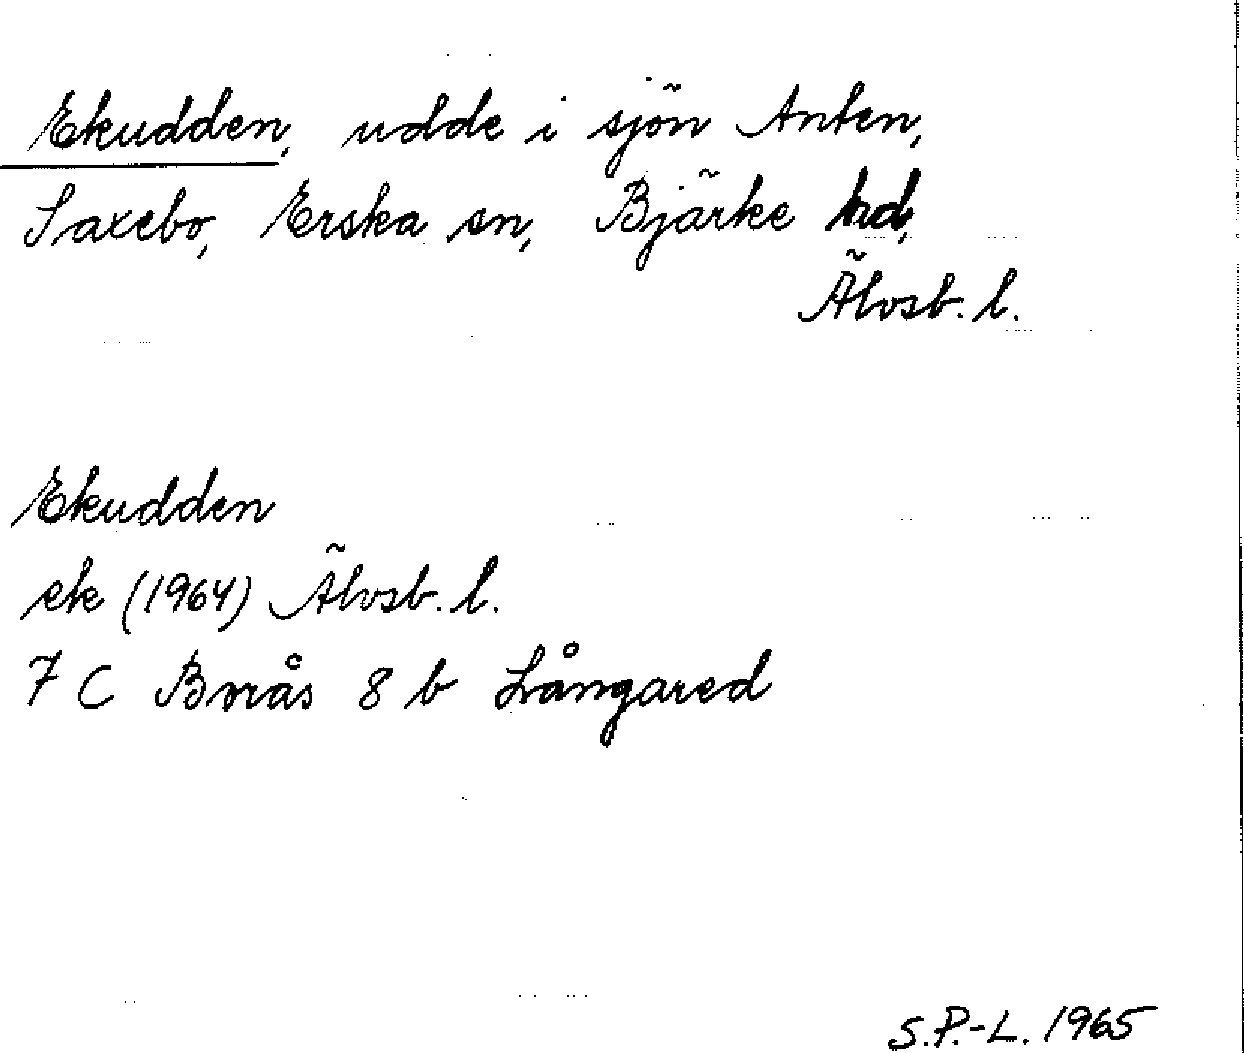 Ekudden, udde i sjön Anten,
Saxebo, Erska sn, Bjärke hd,
Älvsb. l.
Ekudden
ek (1964) Älvsb. l.
7 C Borås 8 b Långared
S.P.-L. 1965